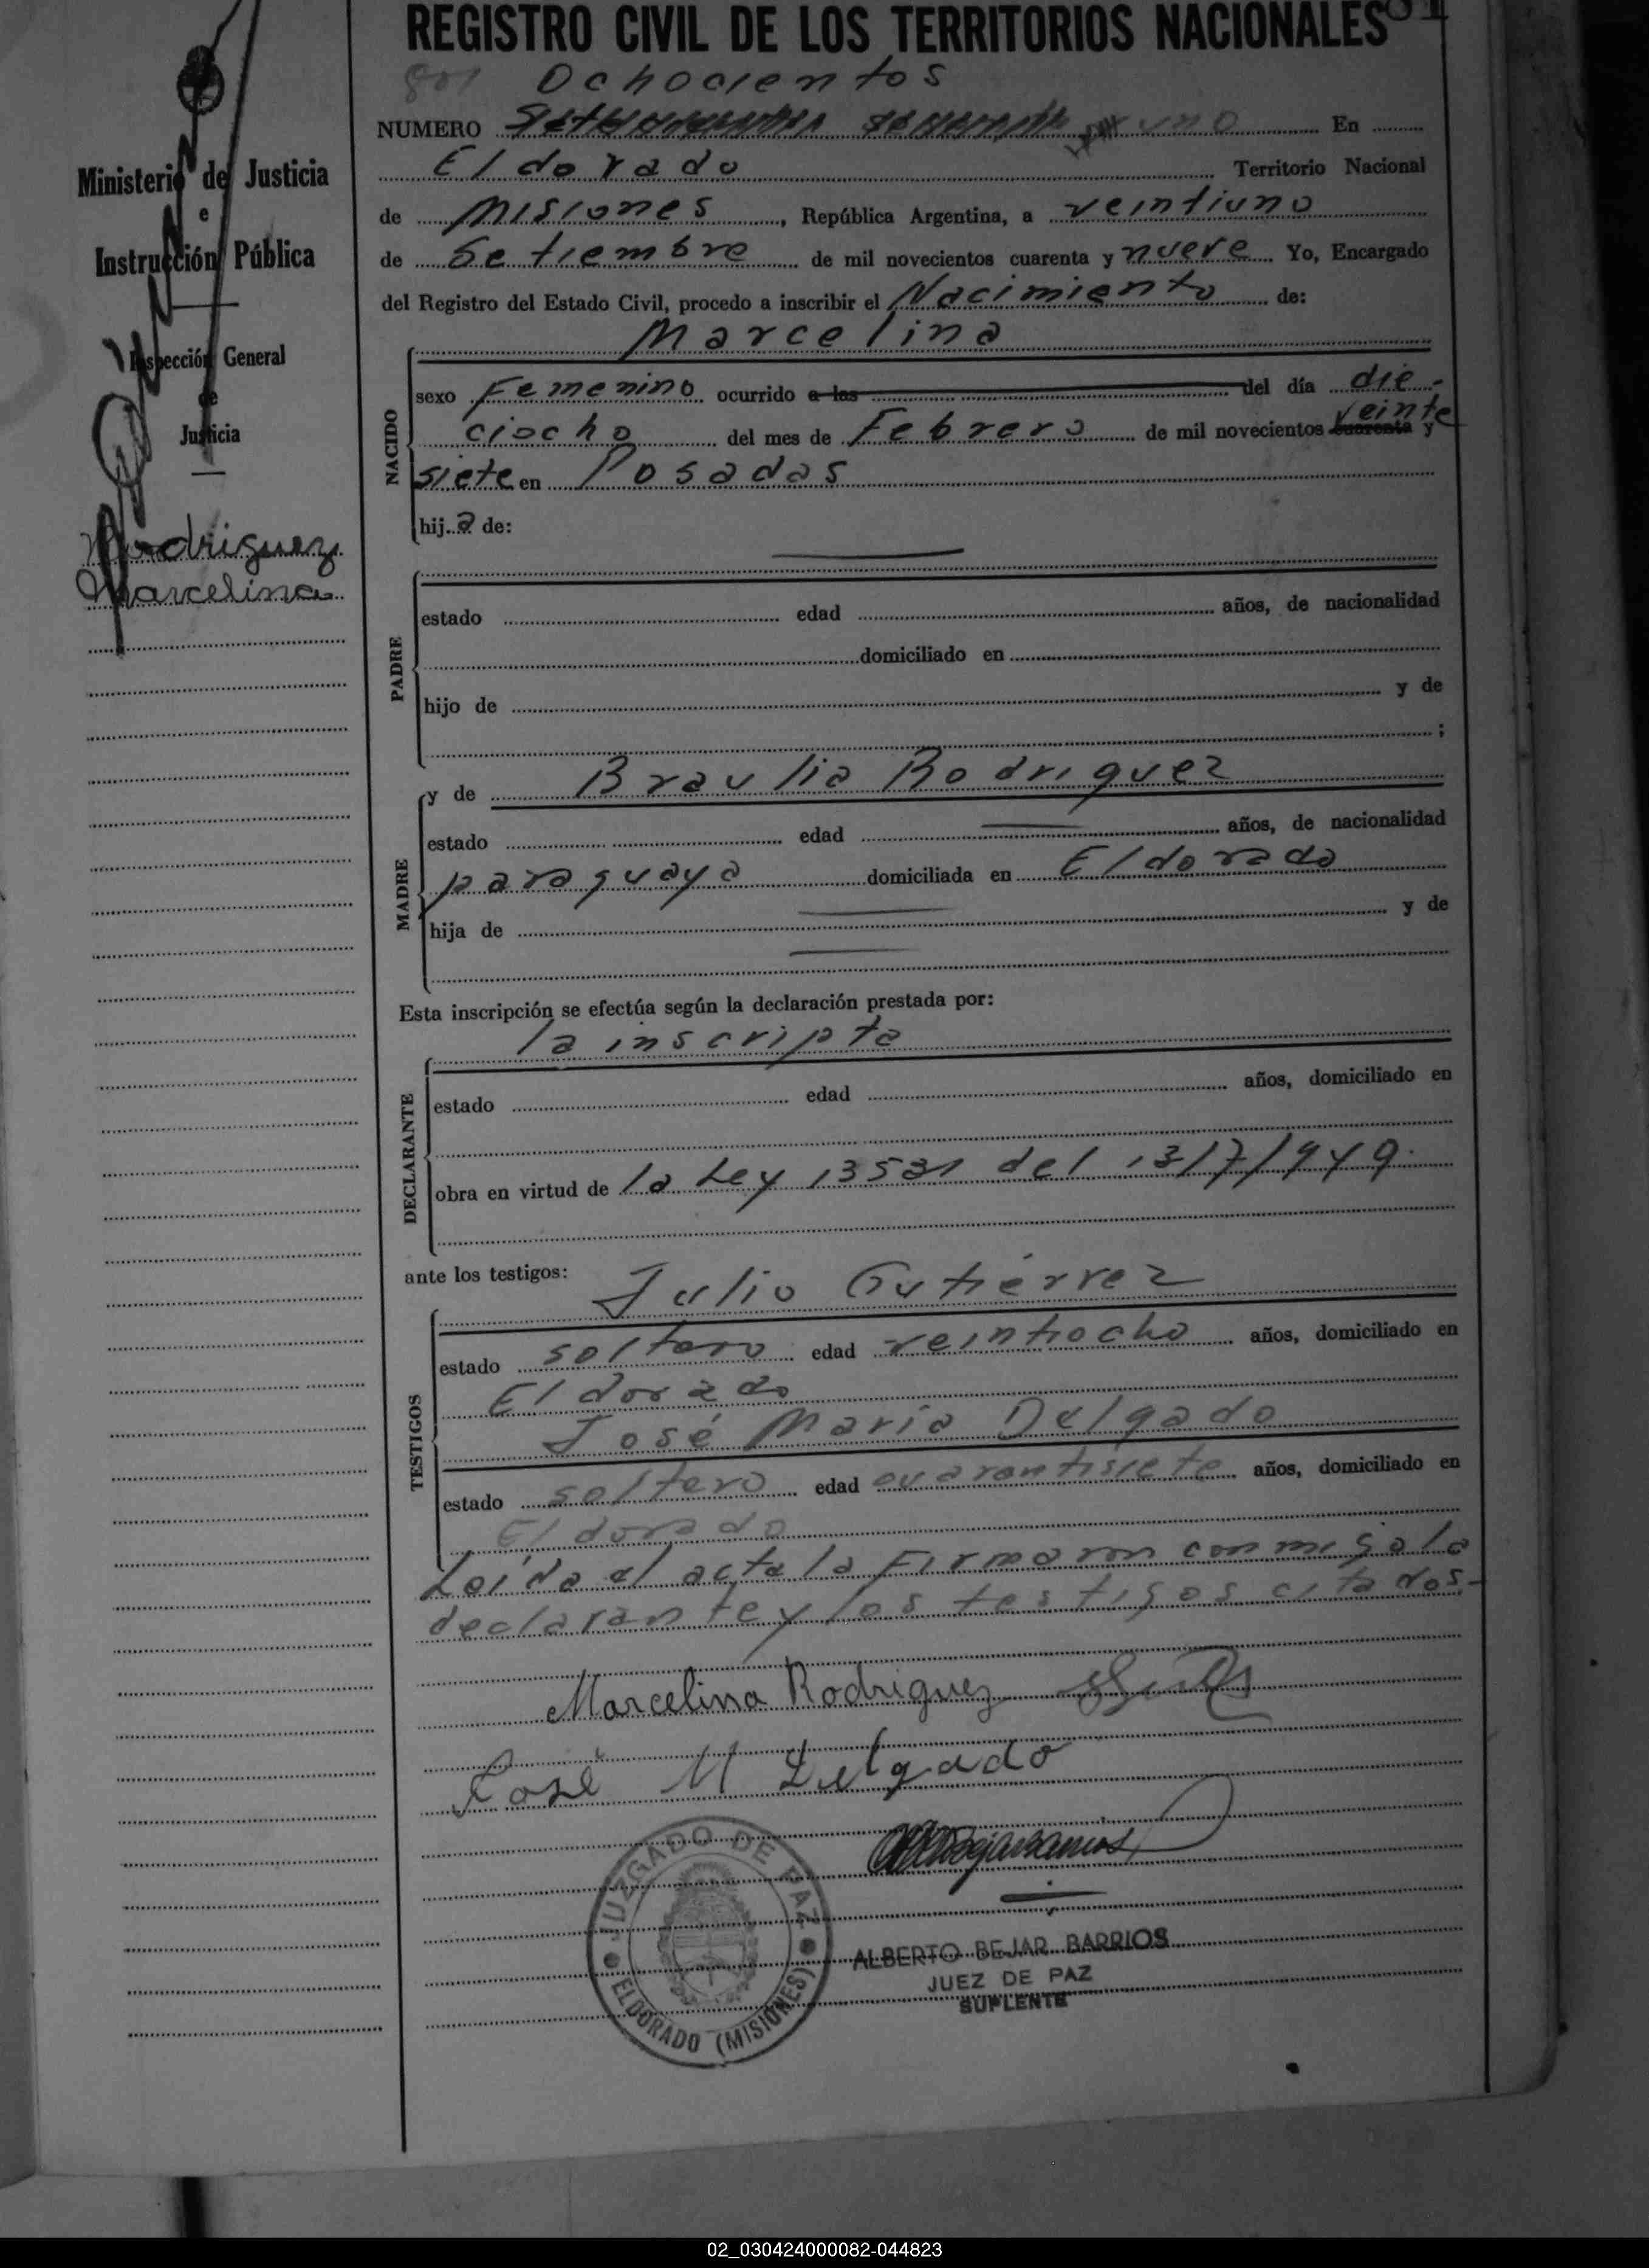 REGISTRO CIVIL DE LOS TERRITORIOS NACIONALES
801 Ochocientos
NUMERO uno En
Eldorado Territorio Nacional
de Misiones, República Argentina, a veintiuno
de Setiembre de mil novecientos cuarenta y nueve Yo, Encargado
del Registro del Estado Civil, procedo a inscribir el Nacimiento de:
Marcelina
NACIDO
sexo Femenino ocurrido a las del día die-
ciocho del mes de Febrero de mil novecientos cuarenta y veinte
siete en Posadas
hija de:
PADRE
estado edad años, de nacionalidad
domiciliado en
hijo de y de
;
y de Braulia Rodriguez
MADRE
estado edad años, de nacionalidad
paraguaya domiciliada en Eldorado
hija de y de
Esta inscripción se efectúa según la declaración prestada por:
la inscripta
DECLARANTE
estado edad años, domiciliado en
obra en virtud de la Ley del 13/7/949.
ante los testigos:
Julio Gutiérrez
TESTIGOS
estado soltero edad veintiocho años, domiciliado en
Eldorado
José Maria Delgado
estado soltero edad cuarentisiete años, domiciliado en
Eldorado
Leída el acta la Firmaron conmigo la
declarante y los testigos citados.-
Marcelina Rodriguez
José M Delgado
JUZGADO DE PAZ
ELDORADO (MISIONES)
ALBERTO BEJAR BARRIOS
JUEZ DE PAZ
SUPLENTE
Ministerio de Justicia
e
Instrucción Pública
Inspección General
de
Justicia
Rodriguez
Marcelina
02_030424000082-044823